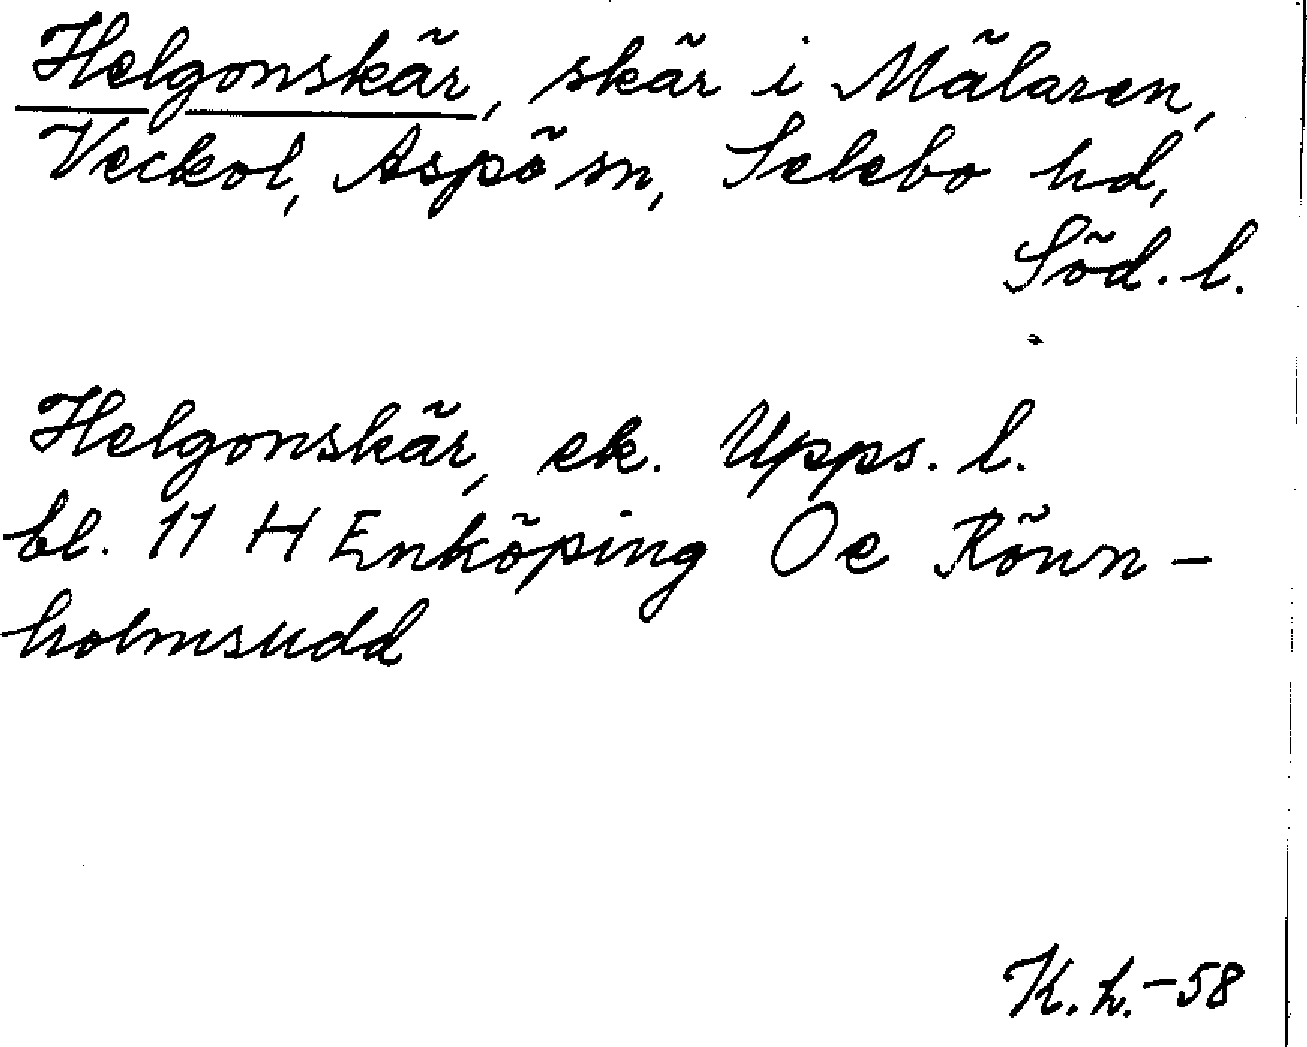 Helgonskär, skär i Mälaren,
Veckol, Aspö sn, Selebo hd,
Söd. l.
Helgonskär, ek. Upps. l.
bl. 11 H Enköping Oe Rönn-
holmsudd
K.h.-58